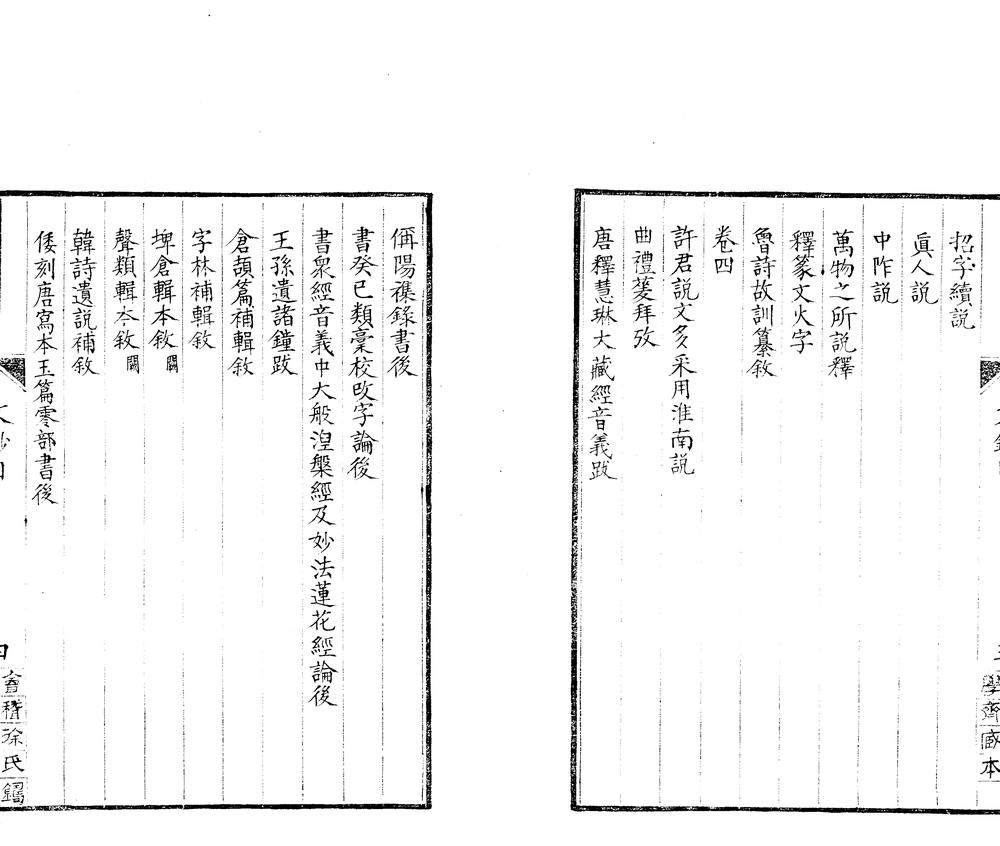 招字續説
眞人説
中咋説
萬物之所説釋
釋篆文火字
魯詩故訓纂敘
卷四
許君説文多采用淮南説
曲禮蓌拜攷
唐釋慧琳大藏經音義跋
學齋
本
偁陽襍錄書後
書癸巳類稾校攺字論後
書衆經音義中大般湼槃經及妙法蓮花經論後
王孫遺諸鐘跋
倉頡篇補輯敘
字林補輯敘
埤倉輯本敘闕
聲類輯本敘闕
韓詩遺説補敘
倭刻唐寫本玉篇零部書後
會稽徐氏鑄